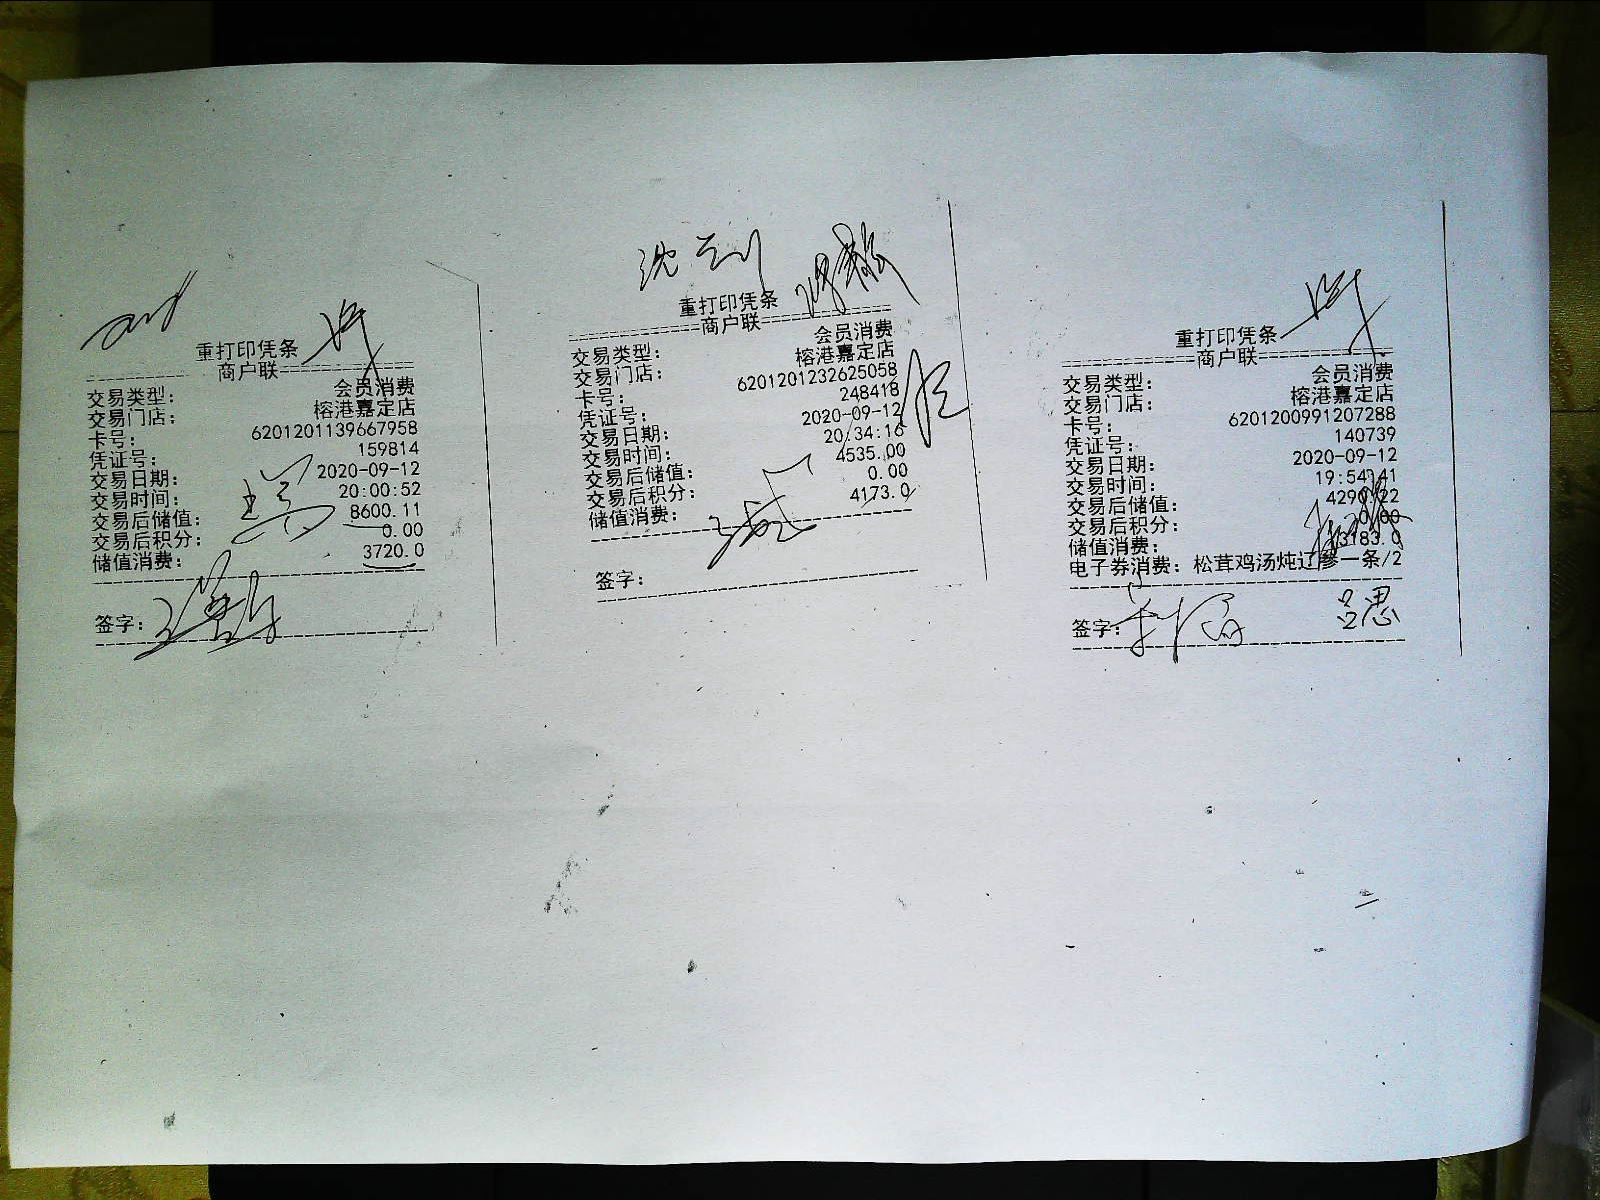 重打印凭条
商户联
交易类型： 会员消费
交易门店： 榕港嘉定店
卡号： 6201201139667958
凭证号： 159814
交易日期： 2020-09-12
交易时间： 20:00:52
交易后储值： 8600.11
交易后积分： 0.00
储值消费： 3720.0
签字：
沈
重打印凭条
商户联
交易类型： 会员消费
交易门店： 榕港嘉定店
卡号： 6201201232625058
凭证号： 248418
交易日期： 2020-09-12
交易时间： 20:34:16
交易后储值： 4535.00
交易后积分： 0.00
储值消费： 4173.0
签字：
重打印凭条
商户联
交易类型： 会员消费
交易门店： 榕港嘉定店
卡号： 6201200991207288
凭证号： 140739
交易日期： 2020-09-12
交易时间： 19:54:41
交易后储值： 4290.22
交易后积分： 0.00
储值消费： 3183.0
电子券消费： 松茸鸡汤炖辽参一条/2
签字： 吕思